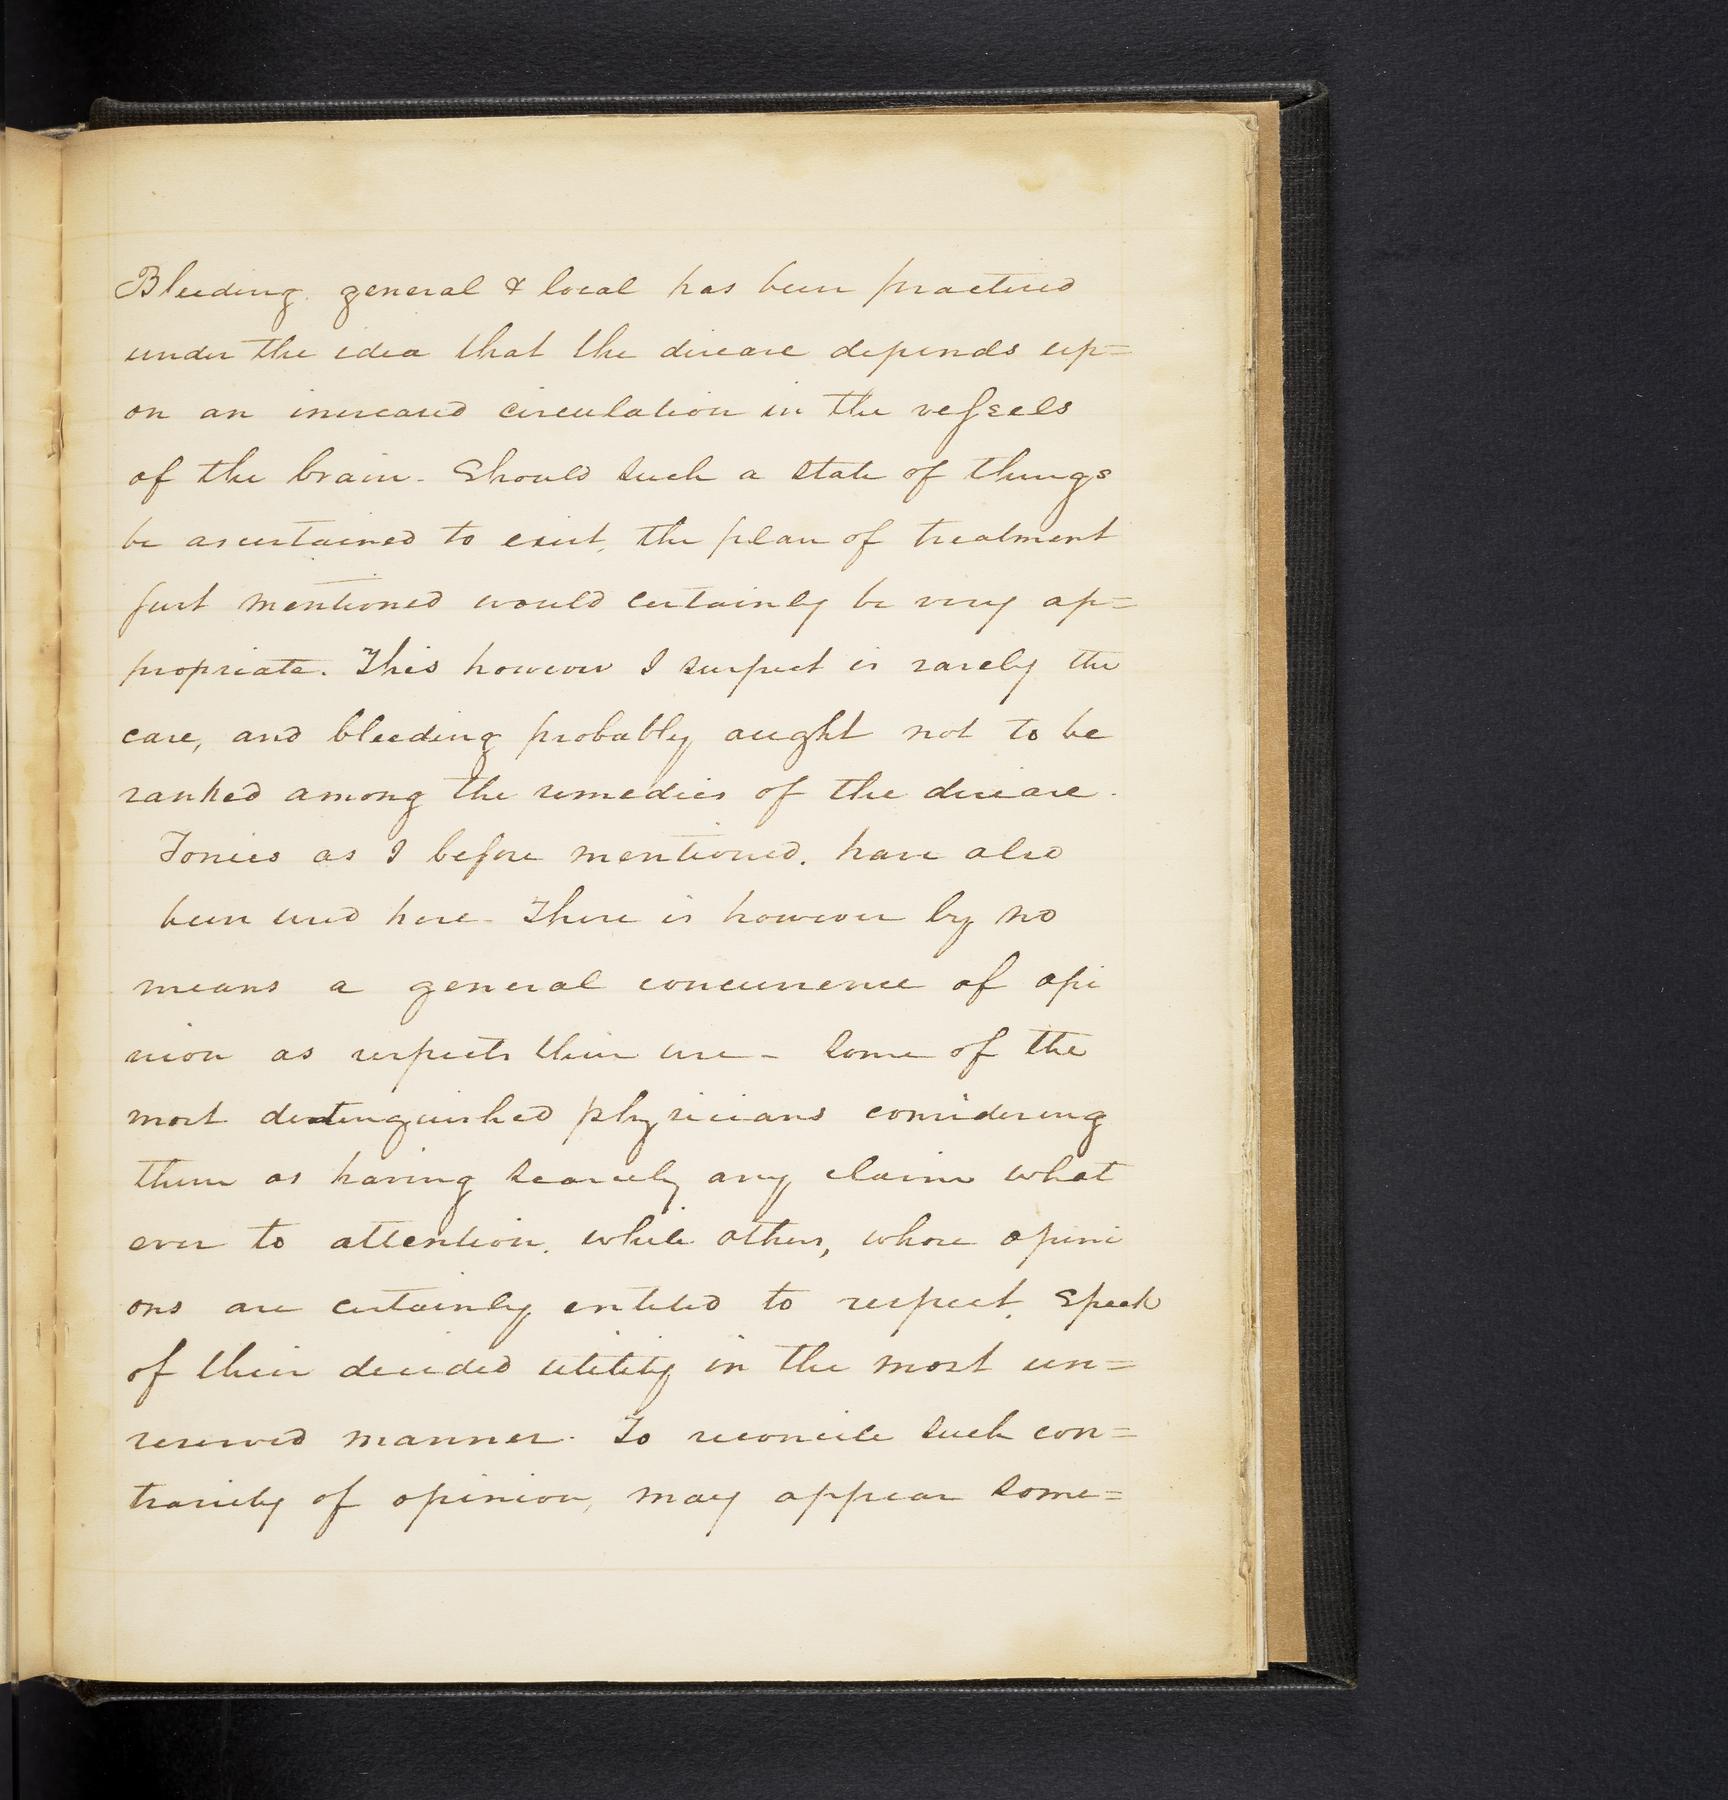 Bleeding general & local has been practiced
under the idea that the disease depends up=
on an increased circulation in the vessels
of the brain - Should such a state of things
be ascertained to exist, the plan of treatment
just mentioned would certainly be very ap=
propriate. This however I suspect is rarely the
case, and bleeding probably aught not to be
ranked among the remedies of the disease.
Tonics as I before mentioned, have also
been used here - There is however by no
means a general concurrence of opi
nion as respects their use - Some of the
most distinguished physicians considering
them as having scarcely any claim what
ever to attention, while others, whose opini
ons are certainly entitled to respect, Speak
of their decided utility in the most un=
reserved manner. To reconcile such con=
trariety of opinion, may appear some=